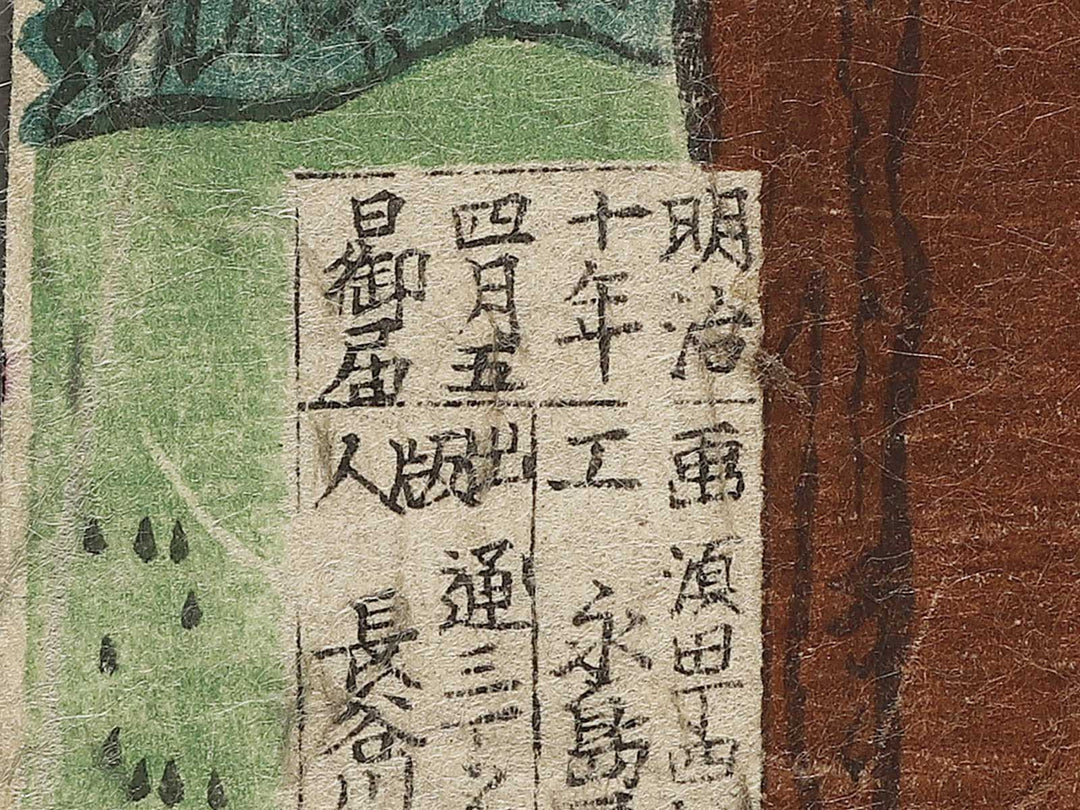 明治
十年
四月五
日御届
画工
須田丁西
永島
出版人
通三丁
長谷川